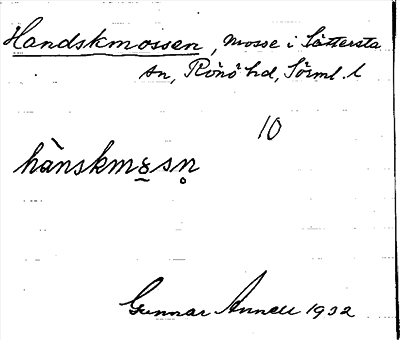 Handskmossen, mosse i Sättersta
sn, Rönö hd, Sörml. l
10
hànskmo̲sn̥
Gunnar Annell 1932